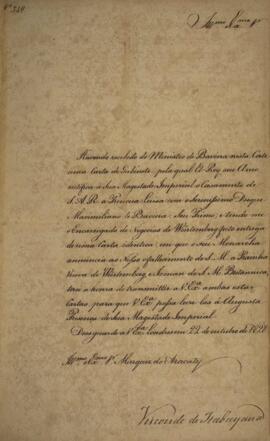 Nº 348
Illmo e Exmo Sr
Havendo recebido do Ministro de Baviera nesta Corte
uma Carta de Gabinete, pela qual El-Rey seu Amo
notifica à Sua Magestade Imperial o Casamento de
S. A. R. a Princeza Luisa com o Serenissimo Duque
Maximiliano de Baviera Seu Primo; e tendo me
o Encarregado de Negocios de Würtemberg feito entrega
de uma Carta identica em que o Seu Monarcha
annuncia ao Nosso o fallecimento de S. M. a Rainha
Viuva de Würtemberg, e Irmãa de S. M. Britannica,
tenho a honra de transmittir a V. Exa ambas estas
Cartas, para que V. Exa possa levá-las à Augusta
Presença de Sua Magestade Imperial.
Deus guarde a V. Exa. Londres em 22 de outubro de 1828
Illmo e Exmo Sr Marquez do Aracaty
Visconde de Itabayana